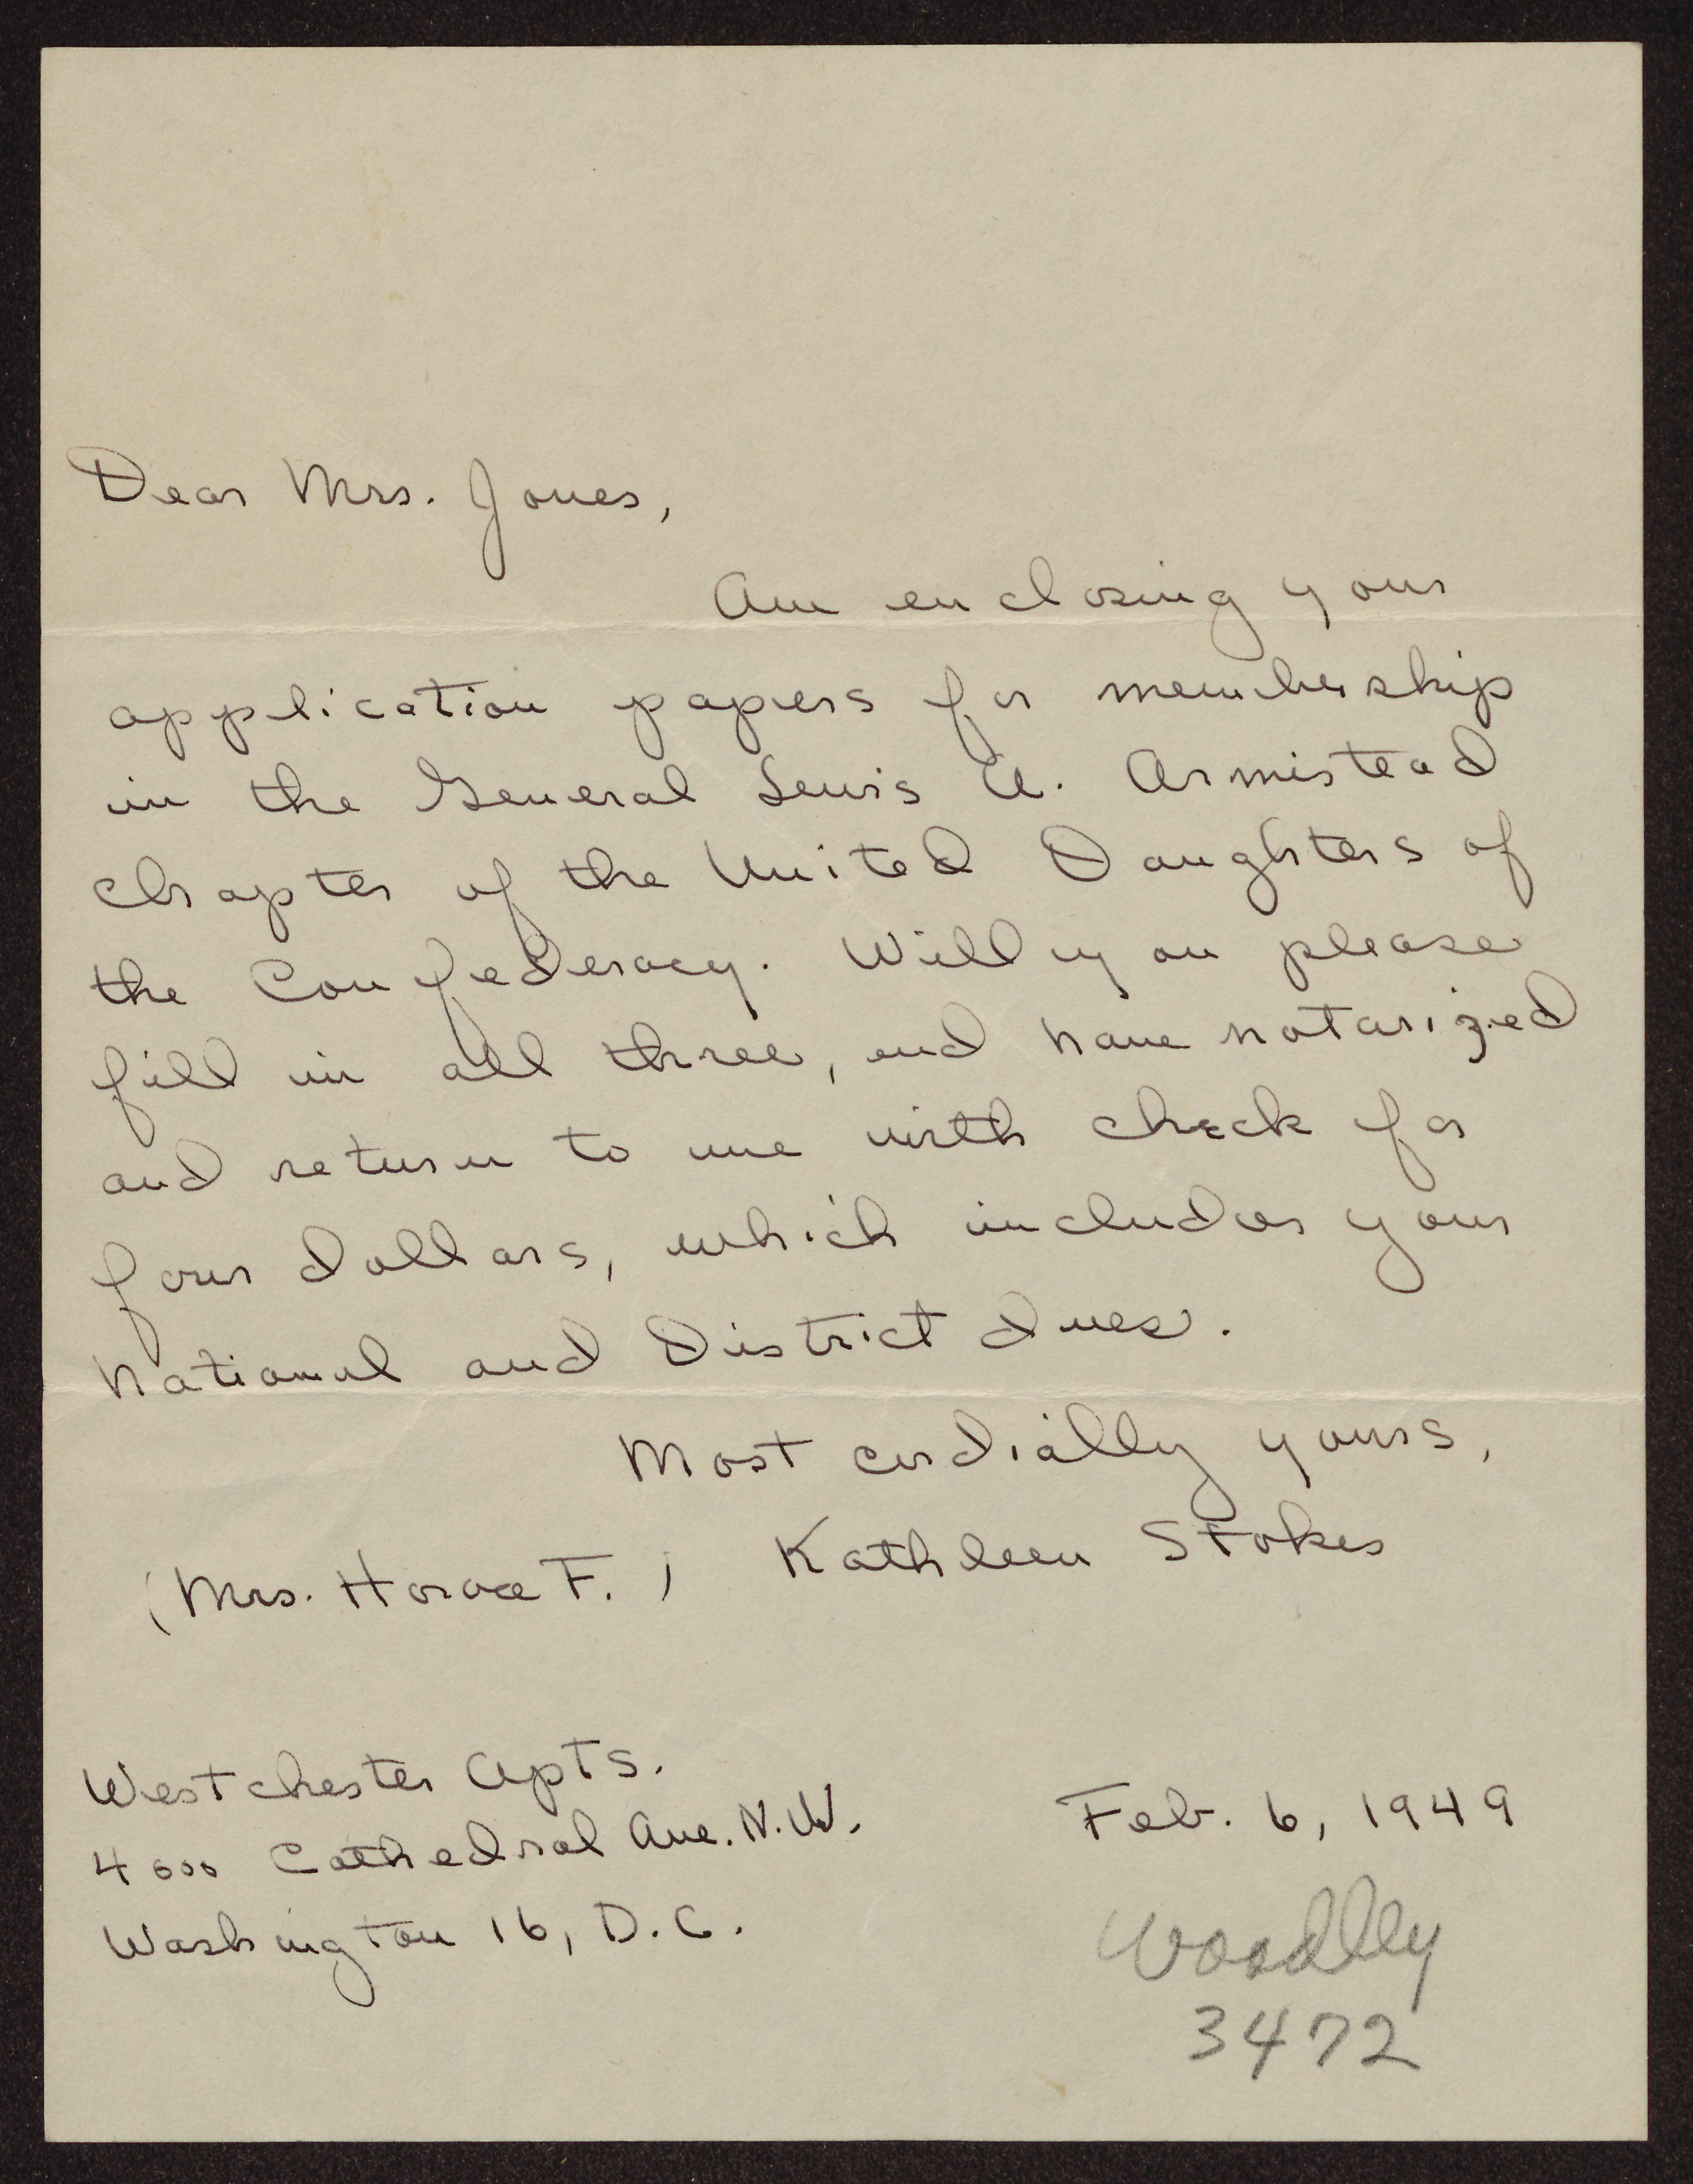 Dear Mrs. Jones,
Am enclosing your
application papers for membership
in the General Lewis A. Armistead
Chapter of the United Daughters of
the Confederacy. Will you please
fill in all three, and have notarized
and return to me with check for
four dollars, which includes your
National and District dues.
Most cordially yours,
(Mrs. Horace F.) Kathleen Stokes
Westchester Apts.
4000 Cathedral Ave. N.W.
Washington 16, D.C.
Feb. 6, 1949
Woodlly
3472